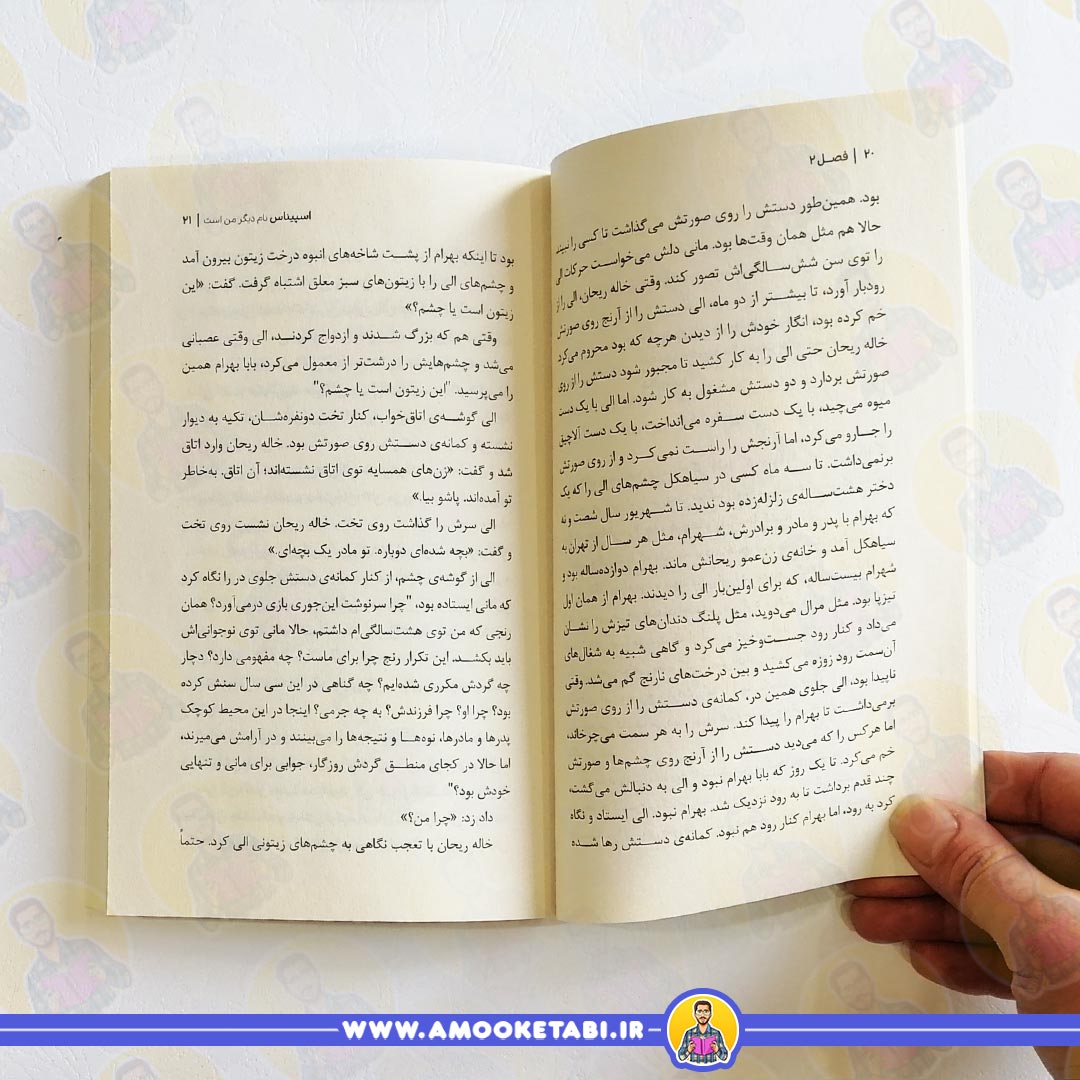 ۲۰ | فصل ۲
بود. همین‌طور دستش را روی صورتش می‌گذاشت تا کسی را نبیند
حالا هم مثل همان وقت‌ها بود. مانی دلش می‌خواست حرکات الی
را توی سن شش‌سالگی‌اش تصور کند. وقتی خاله ریحان، الی را از
رودبار آورد، تا بیشتر از دو ماه، الی دستش را از آرنج روی صورتش
خم کرده بود، انگار خودش را از دیدن هرچه که بود محروم می‌کرد.
خاله ریحان حتی الی را به کار کشید تا مجبور شود دستش را از روی
صورتش بردارد و دو دستش مشغول به کار شود. اما الی با یک دست
میوه می‌چید، با یک دست سفره می‌انداخت، با یک دست آلاچیق
را جارو می‌کرد، اما آرنجش را راست نمی‌کرد و از روی صورتش
برنمی‌داشت. تا سه ماه کسی در سیاهکل چشم‌های الی را که یک
دختر هشت‌ساله‌ی زلزله‌زده بود ندید. تا شهریور سال شصت و نه
که بهرام با پدر و مادر و برادرش، شهرام، مثل هر سال از تهران به
سیاهکل آمد و خانه‌ی زن‌عمو ریحانش ماند. بهرام دوازده‌ساله بود و
شهرام بیست‌ساله، که برای اولین‌بار الی را دیدند. بهرام از همان اول
تیزپا بود. مثل مرال می‌دوید، مثل پلنگ دندان‌های تیزش را نشان
می‌داد و کنار رود جست‌وخیز می‌کرد و گاهی شبیه به شغال‌های
آن‌سمت رود زوزه می‌کشید و بین درخت‌های نارنج گم می‌شد. وقتی
ناپیدا بود، الی جلوی همین در، کمانه‌ی دستش را از روی صورتش
برمی‌داشت تا بهرام را پیدا کند. سرش را به هر سمت می‌چرخاند،
اما هرکس را که می‌دید دستش را از آرنج روی چشم‌ها و صورتش
خم می‌کرد. تا یک روز که بابا بهرام نبود و الی به دنبالش می‌گشت،
چند قدم برداشت تا به رود نزدیک شد. بهرام نبود. الی ایستاد و نگاه
کرد به رود، اما بهرام کنار رود هم نبود. کمانه‌ی دستش رها شده
اسپیناس نام دیگر من است | ۲۱
بود تا اینکه بهرام از پشت شاخه‌های انبوه درخت زیتون بیرون آمد
و چشم‌های الی را با زیتون‌های سبز معلق اشتباه گرفت. گفت: «این
زیتون است یا چشم؟»
وقتی هم که بزرگ شدند و ازدواج کردند، الی وقتی عصبانی
می‌شد و چشم‌هایش را درشت‌تر از معمول می‌کرد، بابا بهرام همین
را می‌پرسید. "این زیتون است یا چشم؟"
الی گوشه‌ی اتاق‌خواب، کنار تخت دونفره‌شان، تکیه به دیوار
نشسته و کمانه‌ی دستش روی صورتش بود. خاله ریحان وارد اتاق
شد و گفت: «زن‌های همسایه توی اتاق نشسته‌اند؛ آن اتاق. به‌خاطر
تو آمده‌اند. پاشو بیا.»
الی سرش را گذاشت روی تخت. خاله ریحان نشست روی تخت
و گفت: «بچه شده‌ای دوباره. تو مادر یک بچه‌ای.»
الی از گوشه‌ی چشم، از کنار کمانه‌ی دستش جلوی در را نگاه کرد
که مانی ایستاده بود، "چرا سرنوشت این‌جوری بازی درمی‌آورد؟ همان
رنجی که من توی هشت‌سالگی‌ام داشتم، حالا مانی توی نوجوانی‌اش
باید بکشد. این تکرار رنج چرا برای ماست؟ چه مفهومی دارد؟ دچار
چه گردش مکرری شده‌ایم؟ چه گناهی در این سی سال سنش کرده
بود؟ چرا او؟ چرا فرزندش؟ به چه جرمی؟ اینجا در این محیط کوچک
پدرها و مادرها، نوه‌ها و نتیجه‌ها را می‌بینند و در آرامش می‌میرند،
اما حالا در کجای منطق گردش روزگار، جوابی برای مانی و تنهایی
خودش بود؟"
داد زد: «چرا من؟»
خاله ریحان با تعجب نگاهی به چشم‌های زیتونی الی کرد. حتماً
WWW.AMOOKETABI.IR